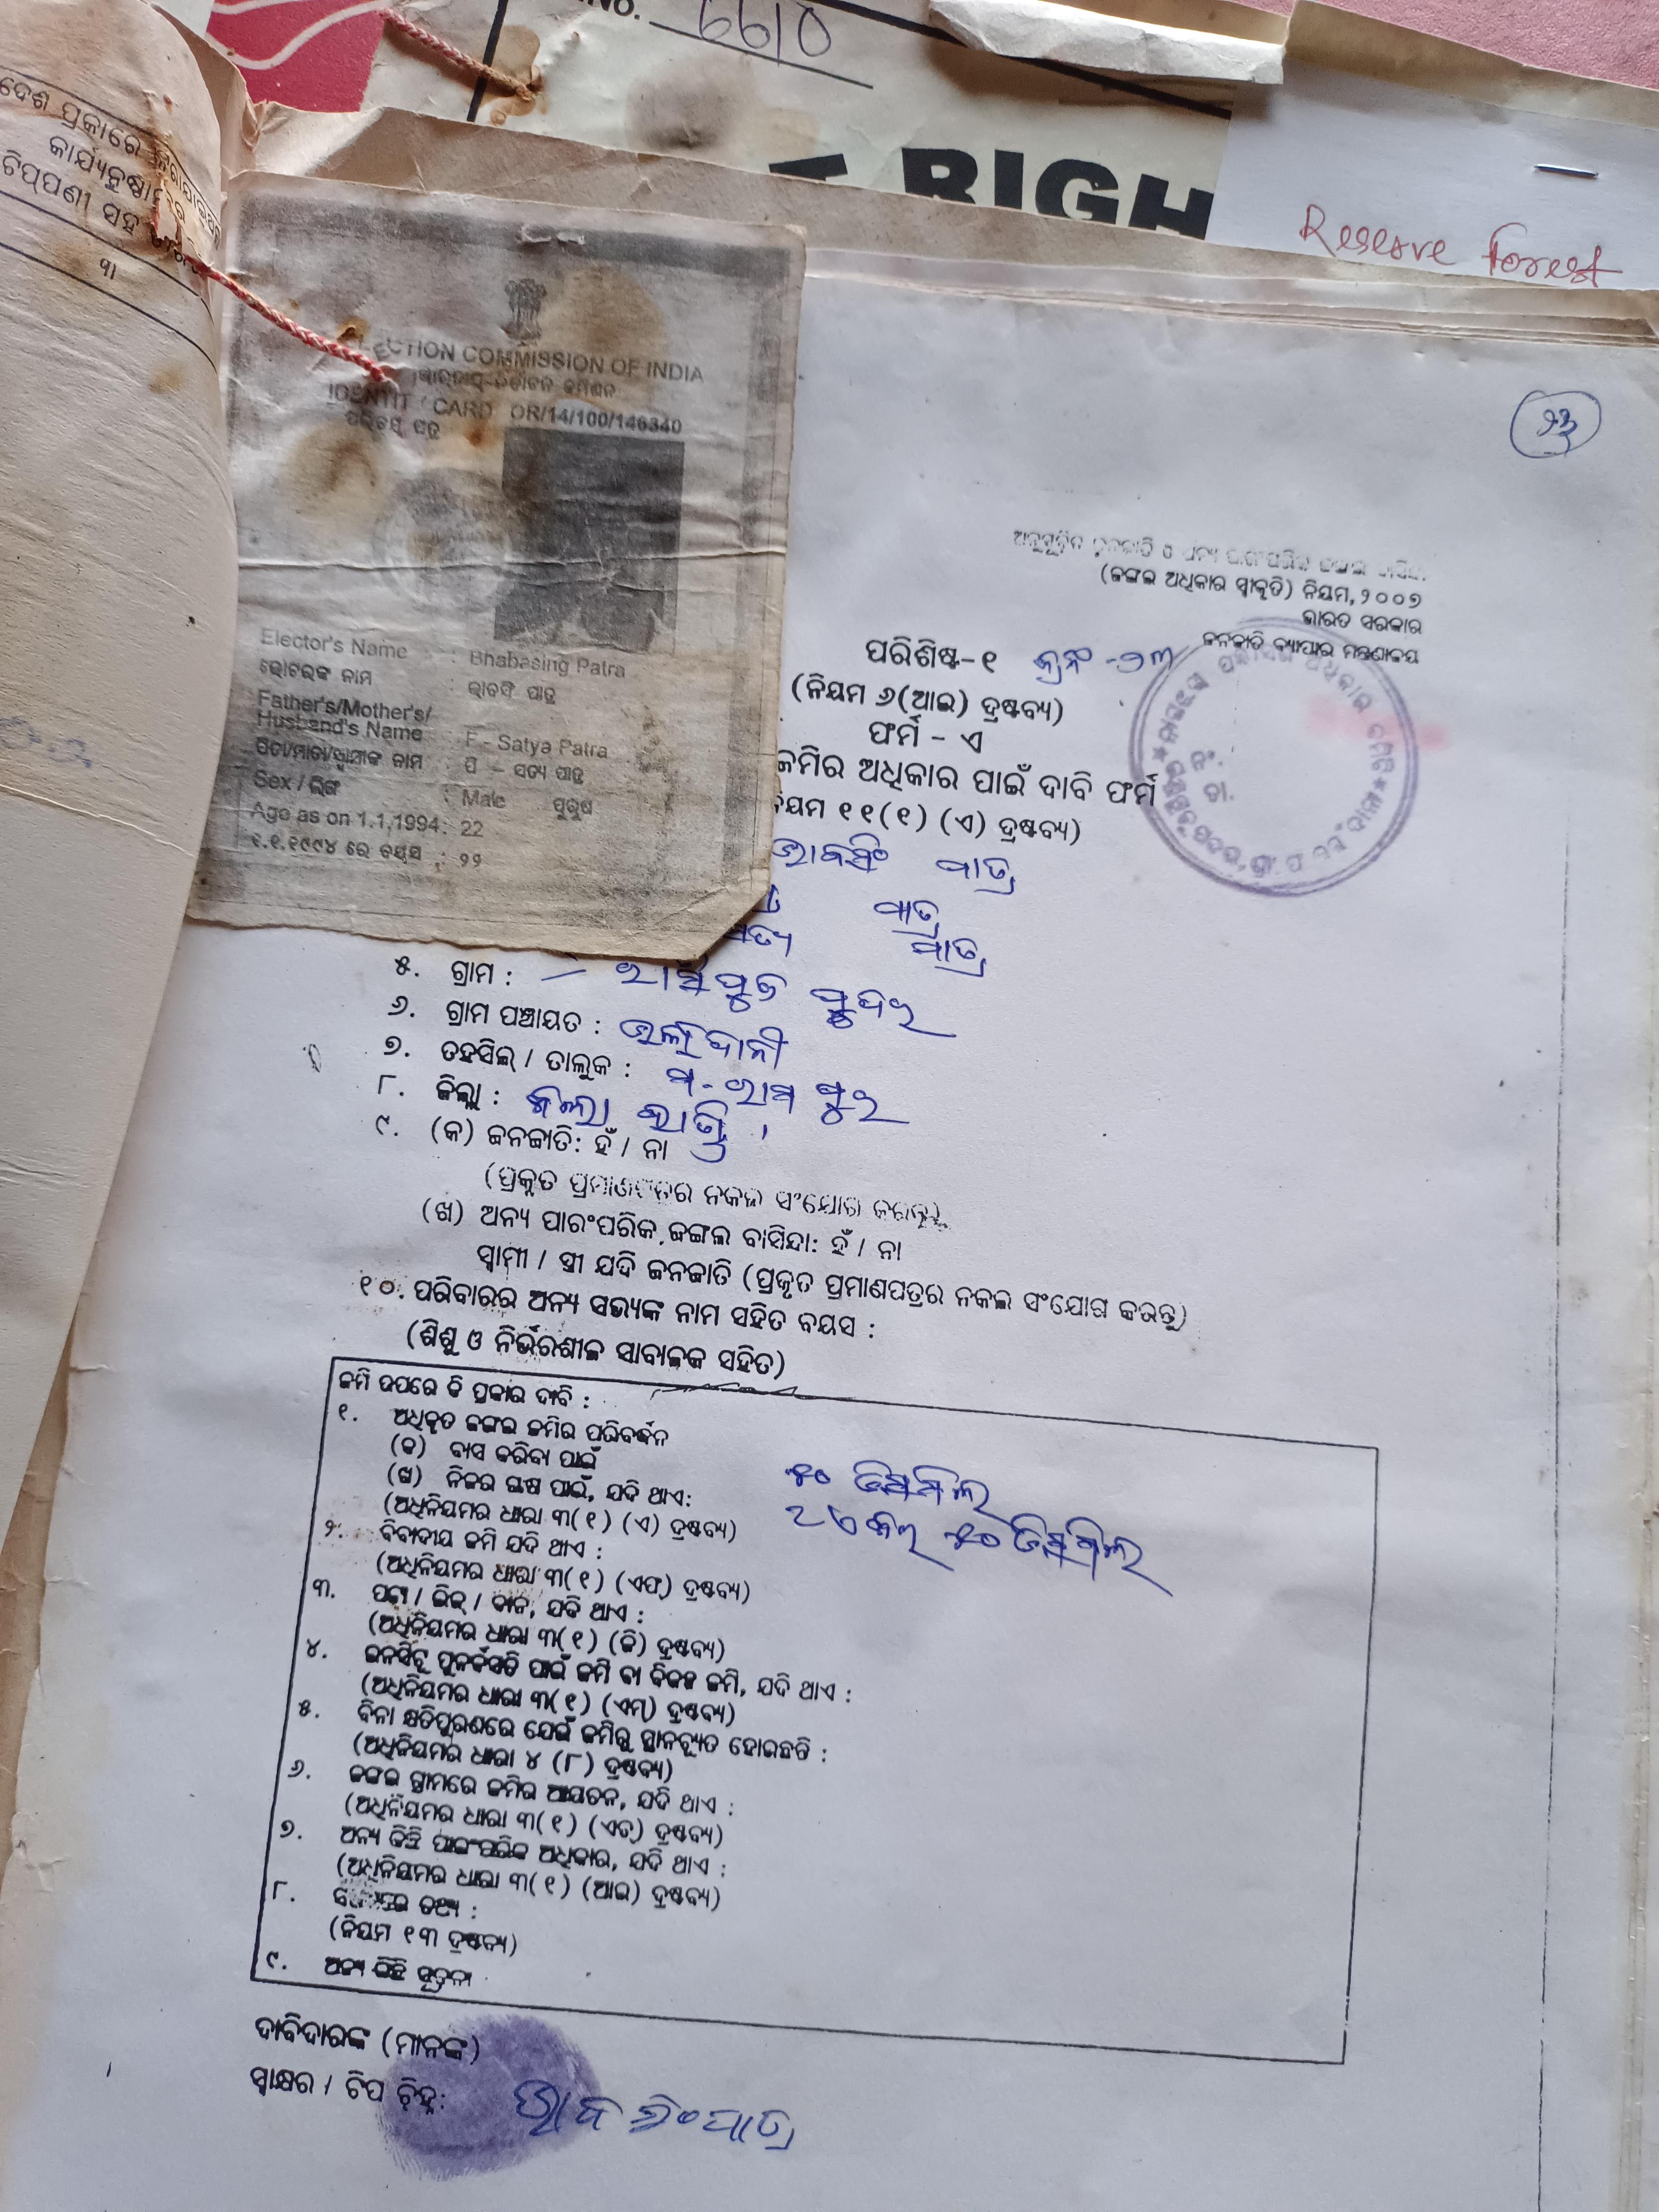 No. 6610
T RIGH
Reserve Forest
ଦେଶ ପ୍ରକାରେ
କାର୍ଯ୍ୟାନୁଷ୍ଠାନର
ଟିପ୍ପଣୀ ସହ
୩।
ECTION COMMISSION OF INDIA
IDENTITY CARD OR/14/100/146340
ପରିଚୟ ପତ୍ର
Elector's Name : Bhabasing Patra
ଭୋଟରଙ୍କ ନାମ : ଭାବସିଂ ପାତ୍ର
Father's/Mother's/
Husband's Name : F - Satya Patra
ପିତା/ମାତା/ସ୍ୱାମୀଙ୍କ ନାମ : ପି - ସତ୍ୟ ପାତ୍ର
Sex / ଲିଙ୍ଗ : Male ପୁରୁଷ
Age as on 1.1.1994: 22
୧.୧.୧୯୯୪ ରେ ବୟସ : ୨୨
୨୩
ଅନୁସୂଚିତ ଜନଜାତି ଓ ଅନ୍ୟ ପାରଂପରିକ ଜଙ୍ଗଲ
(ଜଙ୍ଗଲ ଅଧିକାର ସ୍ୱୀକୃତି) ନିୟମ, ୨୦୦୭
ଭାରତ ସରକାର
ଜନଜାତି ବ୍ୟାପାର ମନ୍ତ୍ରଣାଳୟ
ପରିଶିଷ୍ଟ-୧ କ୍ରନଂ -୨୩
(ନିୟମ ୬(ଆଇ) ଦ୍ରଷ୍ଟବ୍ୟ)
ଫର୍ମ - ଏ
ଜମିର ଅଧିକାର ପାଇଁ ଦାବି ଫର୍ମ
ନିୟମ ୧୧(୧) (ଏ) ଦ୍ରଷ୍ଟବ୍ୟ)
ନଂ.
ତା.
ଭାବସିଂ ପାତ୍ର
ପାତ୍ର
ସତ୍ୟ ପାତ୍ର
୫. ଗ୍ରାମ :
୬. ଗ୍ରାମ ପଞ୍ଚାୟତ :
୭. ତହସିଲ୍ / ତାଲୁକ : ମ. ରାମପୁର
୮. ଜିଲ୍ଲା :
୯. (କ) ଜନଜାତି: ହଁ / ନା
(ପ୍ରକୃତ ପ୍ରମାଣପତ୍ରର ନକଲ ସଂଯୋଗ କରନ୍ତୁ)
(ଖ) ଅନ୍ୟ ପାରଂପରିକ ଜଙ୍ଗଲ ବାସିନ୍ଦା: ହଁ / ନା
ସ୍ୱାମୀ / ସ୍ତ୍ରୀ ଯଦି ଜନଜାତି (ପ୍ରକୃତ ପ୍ରମାଣପତ୍ରର ନକଲ ସଂଯୋଗ କରନ୍ତୁ)
୧୦. ପରିବାରର ଅନ୍ୟ ସଭ୍ୟଙ୍କ ନାମ ସହିତ ବୟସ :
(ଶିଶୁ ଓ ନିର୍ଭରଶୀଳ ସାବାଳକ ସହିତ)
ଜମି ଉପରେ କି ପ୍ରକାର ଦାବି :
୧. ଅଧିକୃତ ଜଙ୍ଗଲ ଜମିର ପରିବର୍ତ୍ତନ
(କ) ବାସ କରିବା ପାଇଁ ୫୦ ଡିସମିଲ
(ଖ) ନିଜର ଚାଷ ପାଇଁ, ଯଦି ଥାଏ: ୨ ଏକର ୫୦ ଡିସମିଲ
(ଅଧିନିୟମର ଧାରା ୩(୧) (ଏ) ଦ୍ରଷ୍ଟବ୍ୟ)
୨. ବିବାଦୀୟ ଜମି ଯଦି ଥାଏ :
(ଅଧିନିୟମର ଧାରା ୩(୧) (ଏଫ୍) ଦ୍ରଷ୍ଟବ୍ୟ)
୩. ପଟ୍ଟା / ଲିଜ୍ / ଦାନ, ଯଦି ଥାଏ :
(ଅଧିନିୟମର ଧାରା ୩(୧) (ଜି) ଦ୍ରଷ୍ଟବ୍ୟ)
୪. ଇନସିଟୁ ପୁନର୍ବସତି ପାଇଁ ଜମି ବା ବିକଳ୍ପ ଜମି, ଯଦି ଥାଏ :
(ଅଧିନିୟମର ଧାରା ୩(୧) (ଏମ୍) ଦ୍ରଷ୍ଟବ୍ୟ)
୫. ବିନା କ୍ଷତିପୂରଣରେ ଯେଉଁ ଜମିରୁ ସ୍ଥାନଚ୍ୟୁତ ହୋଇଛନ୍ତି :
(ଅଧିନିୟମର ଧାରା ୪ (୮) ଦ୍ରଷ୍ଟବ୍ୟ)
୬. ଜଙ୍ଗଲ ଗ୍ରାମରେ ଜମିର ଆୟତନ, ଯଦି ଥାଏ :
(ଅଧିନିୟମର ଧାରା ୩(୧) (ଏଚ୍) ଦ୍ରଷ୍ଟବ୍ୟ)
୭. ଅନ୍ୟ କିଛି ପାରଂପରିକ ଅଧିକାର, ଯଦି ଥାଏ :
(ଅଧିନିୟମର ଧାରା ୩(୧) (ଆଇ) ଦ୍ରଷ୍ଟବ୍ୟ)
୮. ତଥ୍ୟ :
(ନିୟମ ୧୩ ଦ୍ରଷ୍ଟବ୍ୟ)
୯. ଅନ୍ୟ କିଛି ସୂଚନା
ଦାବିଦାରଙ୍କ (ମାନଙ୍କ)
ସ୍ୱାକ୍ଷର / ଟିପ ଚିହ୍ନ: ଭାବସିଂ ପାତ୍ର